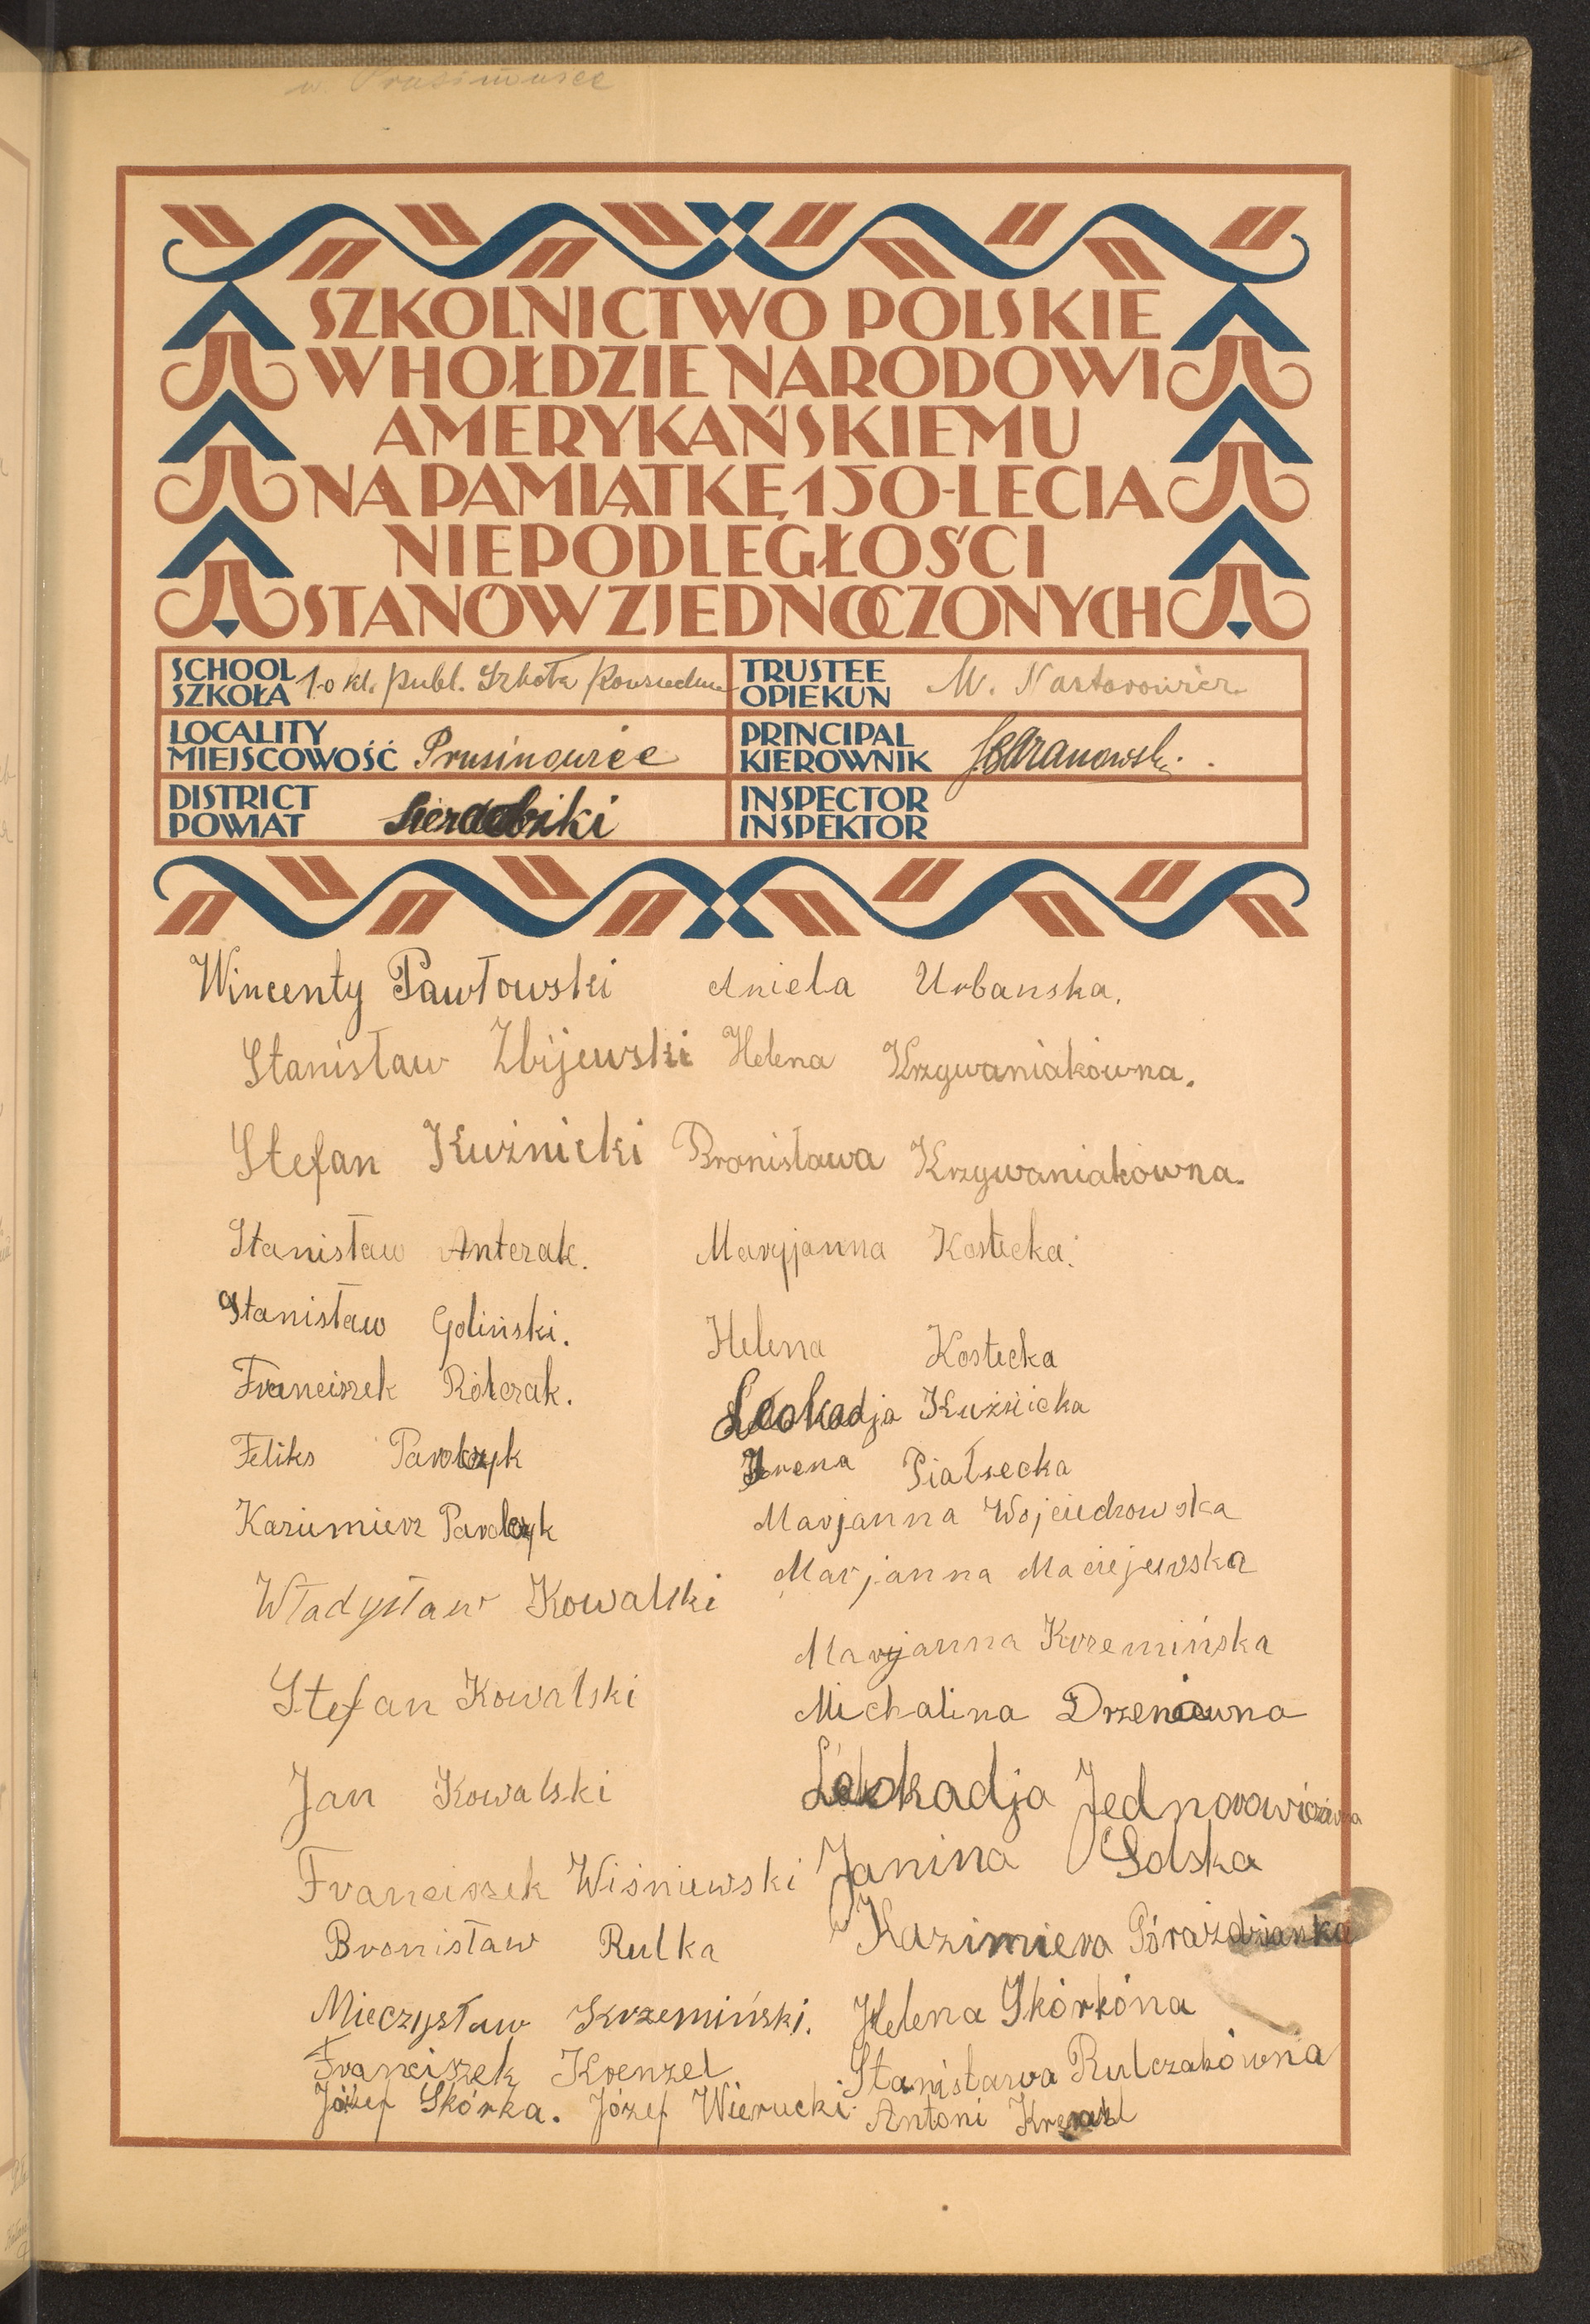 w. Prusinowice
SZKOLNICTWO POLSKIE
W HOŁDZIE NARODOWI
AMERYKAŃSKIEMU
NA PAMIĄTKĘ 150-LECIA
NIEPODLEGŁOŚCI
STANÓW ZJEDNOCZONYCH
SCHOOL
SZKOŁA 1-o kl. publ. Szkoła Powszechna
TRUSTEE
OPIEKUN M. Nartorowicz
LOCALITY
MIEJSCOWOŚĆ Prusinowice
PRINCIPAL
KIEROWNIK J. Baranowski.
DISTRICT
POWIAT Sieradzki
INSPECTOR
INSPEKTOR
Wincenty Pawłowski
Stanisław Zbijewski
Stefan Kuźnicki
Stanisław Antczak.
Stanisław Goliński.
Franciszek Rólczak.
Feliks Pawlczyk
Kazimierz Pawlczyk
Władysław Kowalski
Stefan Kowalski
Jan Kowalski
Franciszek Wiśniewski
Bronisław Rulka
Mieczysław Krzemiński.
Franciszek Krenzel
Józef Skórka. Józef Wierucki
Aniela Urbanska.
Helena Krzywaniakówna.
Bronisława Krzywaniakówna.
Maryjanna Kostecka.
Helena Kostecka
Leokadja Kuźnicka
Irena Piałsecka
Marjanna Wojciechowska
Marjanna Maciejewska
Maryjanna Krzemińska
Michalina
Leokadja Jednorowiczówna
Janina Solska
Kazimiera Póraździanka
Helena Skórkóna
Stanisława Rulczakówna
Antoni Krenzel